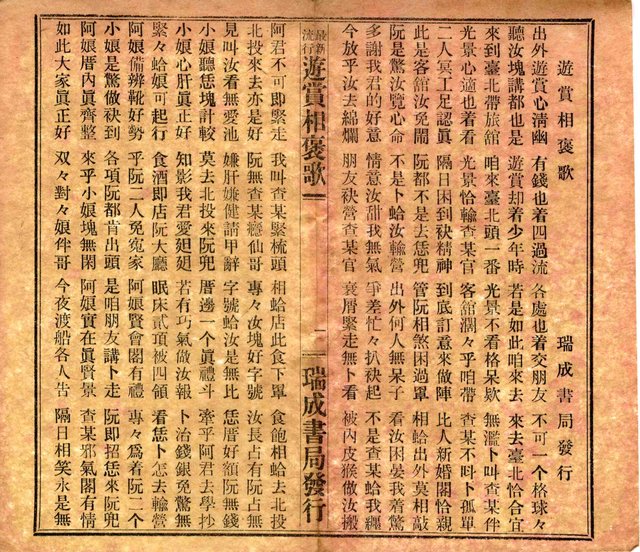 遊賞相褒歌　瑞成書局發行
出外遊賞心清幽　有錢也着四過流　各處也着交朋友　不可一个格球々
聽汝塊講都也是　遊賞却着少年時　若是如此咱來去　來去臺北恰合宜
來到臺北帶旅舘　咱來臺北頭一番　光景不看格呆欵　無濫卜叫查某伴
光景心適也着看　光景恰輸查某官　客舘濶々乎咱帶　查某不呌卜孤單
二人冥工足認眞　隔日困到袂精神　到底訂意來做陣　比人新婚閣恰親
此是客舘汝免鬧　阮都不是去恁兜　管阮相煞困過罩　相蛤出外莫相敲
阮是驚汝覽心命　不是卜蛤汝輸營　出外何人無呆子　看汝困晏我着驚
多謝我君的好意　情意汝甜我無氣　爭差忙々扒袂起　不是查某蛤我纏
今放乎汝去綿爛　朋友袂營查某官　衰屑緊走無卜看　被內皮猴做汝搬
最新流行　遊賞相褒歌　二　瑞成書局發行
阿君不可即緊走　我叫查某緊梳頭　相蛤店此食下罩　食飽相蛤去北投
北投來去亦是好　阮無查某癮仙哥　專々汝塊好字號　汝長占有阮占無
見叫汝看無愛池　嫌肝嫌健請甲辭　字號蛤汝是無比　恁厝好額阮無錢
小娘聽恁塊計較　莫去北投來阮兜　厝邊一个眞禮斗　牽乎阿君去學抄
小娘心肝眞正好　知影我君愛𨑨迌　若有巧氣做汝報　卜治錢銀免驚無
緊々蛤娘可起行　食酒即店阮大廳　眠床貳頂被四領　看恁卜怎去輸營
阿娘備辨靴好勢　乎阮二人免寃家　阿娘賢會閣有禮　專々爲着阮二个
小娘是驚做袂到　各項阮都肯出頭　是咱朋友講卜走　阮即招恁來阮兜
阿娘厝內眞齊整　來乎小娘塊無閑　阿娘實在眞賢景　查某邪氣閣有情
如此大家眞正好　双々對々娘伴哥　今夜渡船各人告　隔日相笑永是無